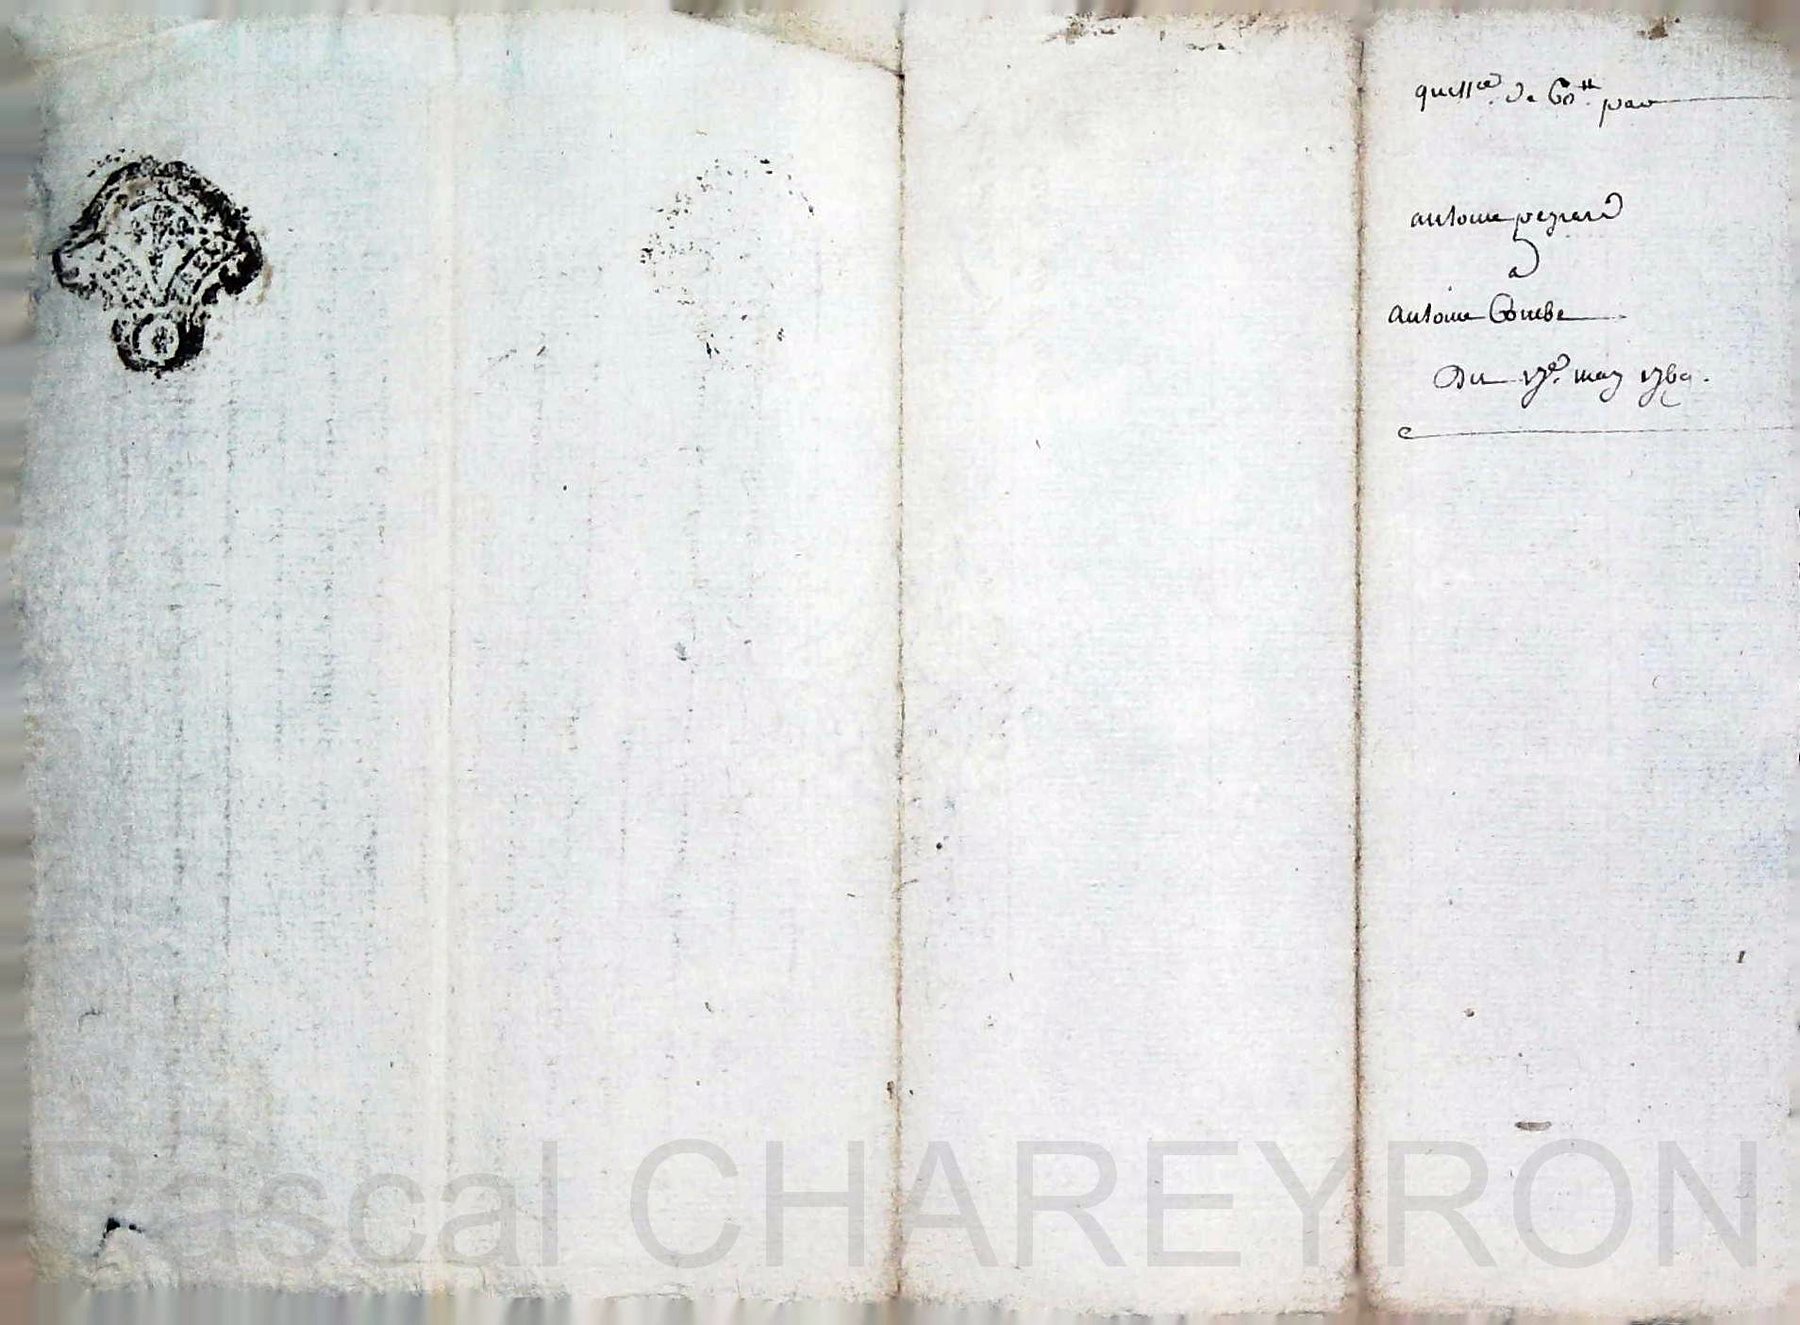 quittce. de 60tt. par
antoine peyrard
a
antoine Combe
Du 17e. may 1769.
Pascal CHAREYRON